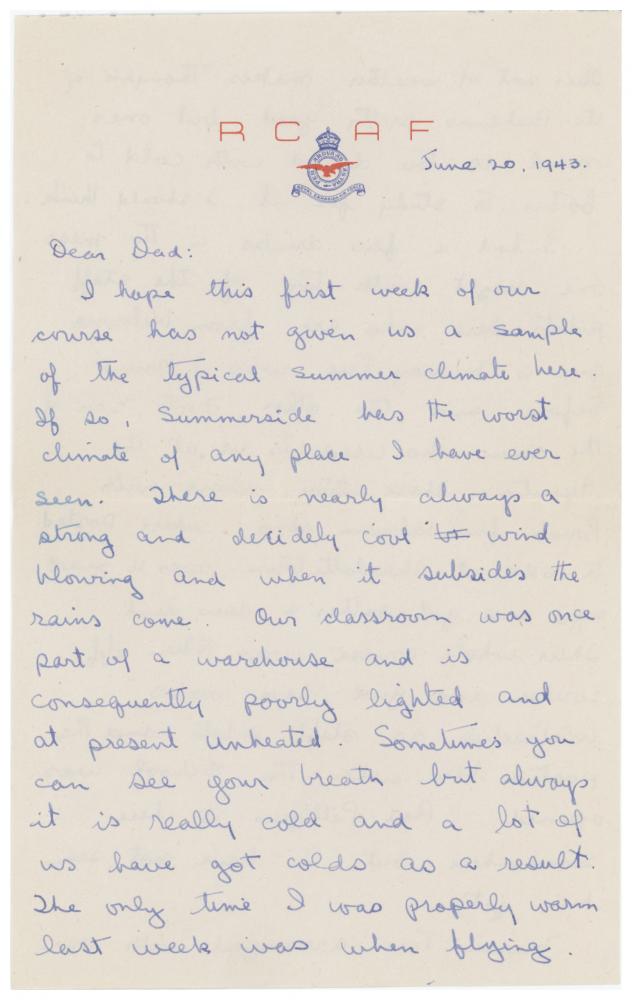 R C A F
PER ARDUA AD ASTRA
ROYAL CANADIAN AIR FORCE
June 20, 1943.
Dear Dad:
I hope this first week of our
course has not given us a sample
of the typical summer climate here.
If so, Summerside has the worst
climate of any place I have ever
seen. There is nearly always a
strong and decidely cool wind
blowing and when it subsides the
rains come. Our classroom was once
part of a warehouse and is
consequently poorly lighted and
at present unheated. Sometimes you
can see your breath but always
it is really cold and a lot of
us have got colds as a result.
The only time I was properly warm
last week was when flying.